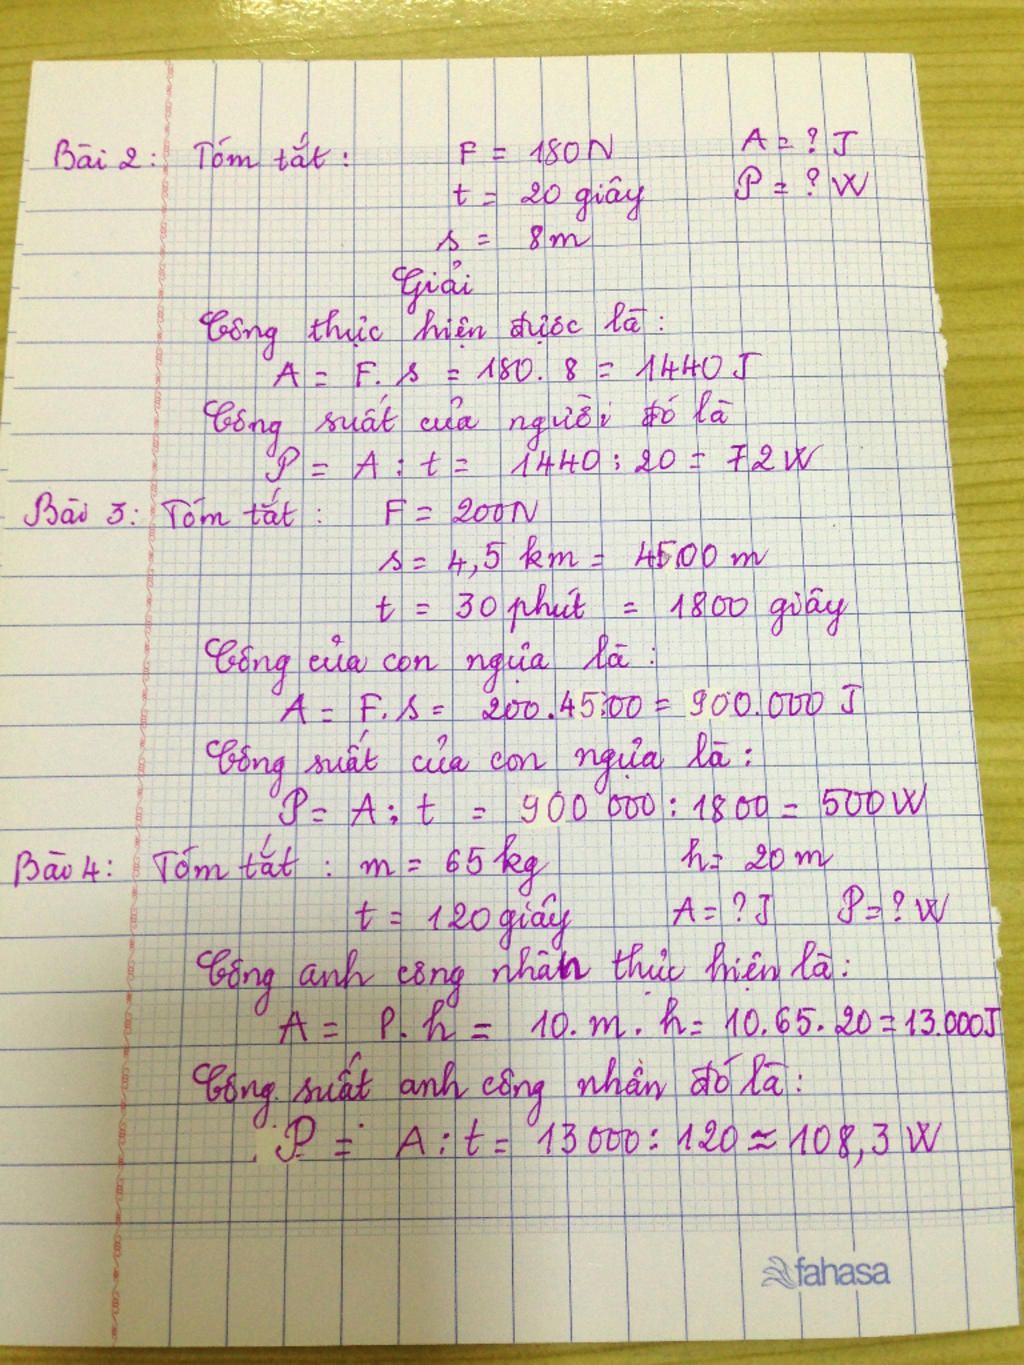 Bài 2: Tóm tắt: F = 180N A = ? J
t = 20 giây P = ? W
s = 8m
Giải
Công thực hiện được là:
A = F. s = 180. 8 = 1440 J
Công suất của người đó là
P = A : t = 1440 : 20 = 72 W
Bài 3: Tóm tắt: F = 200N
s = 4,5 km = 4500 m
t = 30 phút = 1800 giây
Công của con ngựa là:
A = F.s = 200.4500 = 900.000 J
Công suất của con ngựa là:
P = A : t = 900 000 : 1800 = 500 W
Bài 4: Tóm tắt: m = 65 kg h = 20 m
t = 120 giây A = ? J P = ? W
Công anh công nhân thực hiện là:
A = P. h = 10. m. h = 10.65.20 = 13.000J
Công suất anh công nhân đó là:
P = A : t = 13 000 : 120 ≈ 108,3 W
fahasa